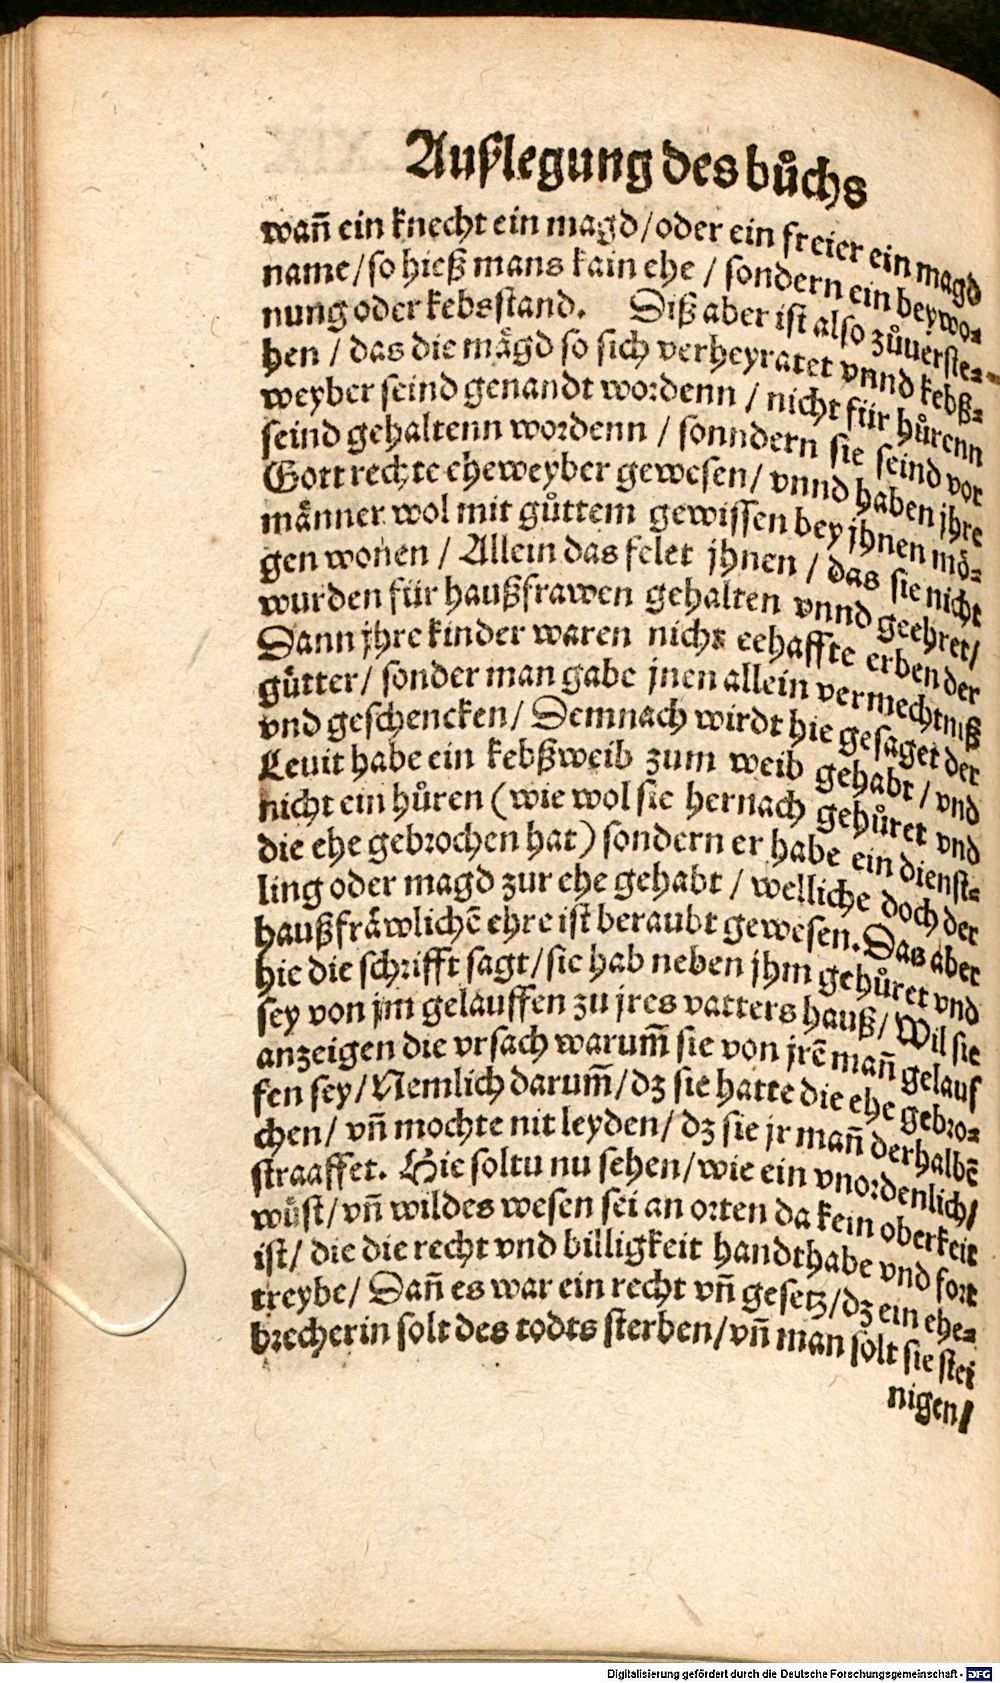 Außlegung des bůchs
wañ ein knecht ein magd/oder ein freier ein magd
name/so hieß mans kain ehe / sondern ein beywo-
nung oder kebsstand. Diß aber ist also zůuerste-
hen / das die mägd so sich verheyratet vnnd kebß-
weyber seind genandt wordenn / nicht für hůrenn
seind gehaltenn wordenn / sonndern sie seind vor
Gott rechte eheweyber gewesen/ vnnd haben jhre
männer wol mit gůttem gewissen bey jhnen mö-
gen wonen / Allein das felet jhnen / das sie nicht
wurden für haußfrawen gehalten vnnd geehret/
Dann jhre kinder waren nicht eehaffte erben der
gůtter/ sonder man gabe jnen allein vermechtniß
vnd geschencken/ Demnach wirdt hie gesaget der
Leuit habe ein kebßweib zum weib gehabt / vnd
nicht ein hůren (wie wol sie hernach gehůret vnd
die ehe gebrochen hat) sondern er habe ein dienst-
ling oder magd zur ehe gehabt / welliche doch der
haußfräwlichē ehre ist beraubt gewesen. Das aber
hie die schrifft sagt/sie hab neben jhm gehůret vnd
sey von jm gelauffen zu jres vatters hauß/ Wil sie
anzeigen die vrsach warum̃ sie von jrē mañ gelauf
fen sey/Nemlich darum̃/dz sie hatte die ehe gebro-
chen/ vñ mochte nit leyden/ dz sie jr mañ derhalbē
straaffet. Hie soltu nu sehen/wie ein vnordenlich/
wüst/vñ wildes wesen sei an orten da kein oberkeit
ist/ die die recht vnd billigkeit handthabe vnd fort
treybe/ Dañ es war ein recht vñ gesetz/dz ein ehe-
brecherin solt des todts sterben/vñ man solt sie stei
nigen/
Digitalisierung gefördert durch die Deutsche Forschungsgemeinschaft - DFG